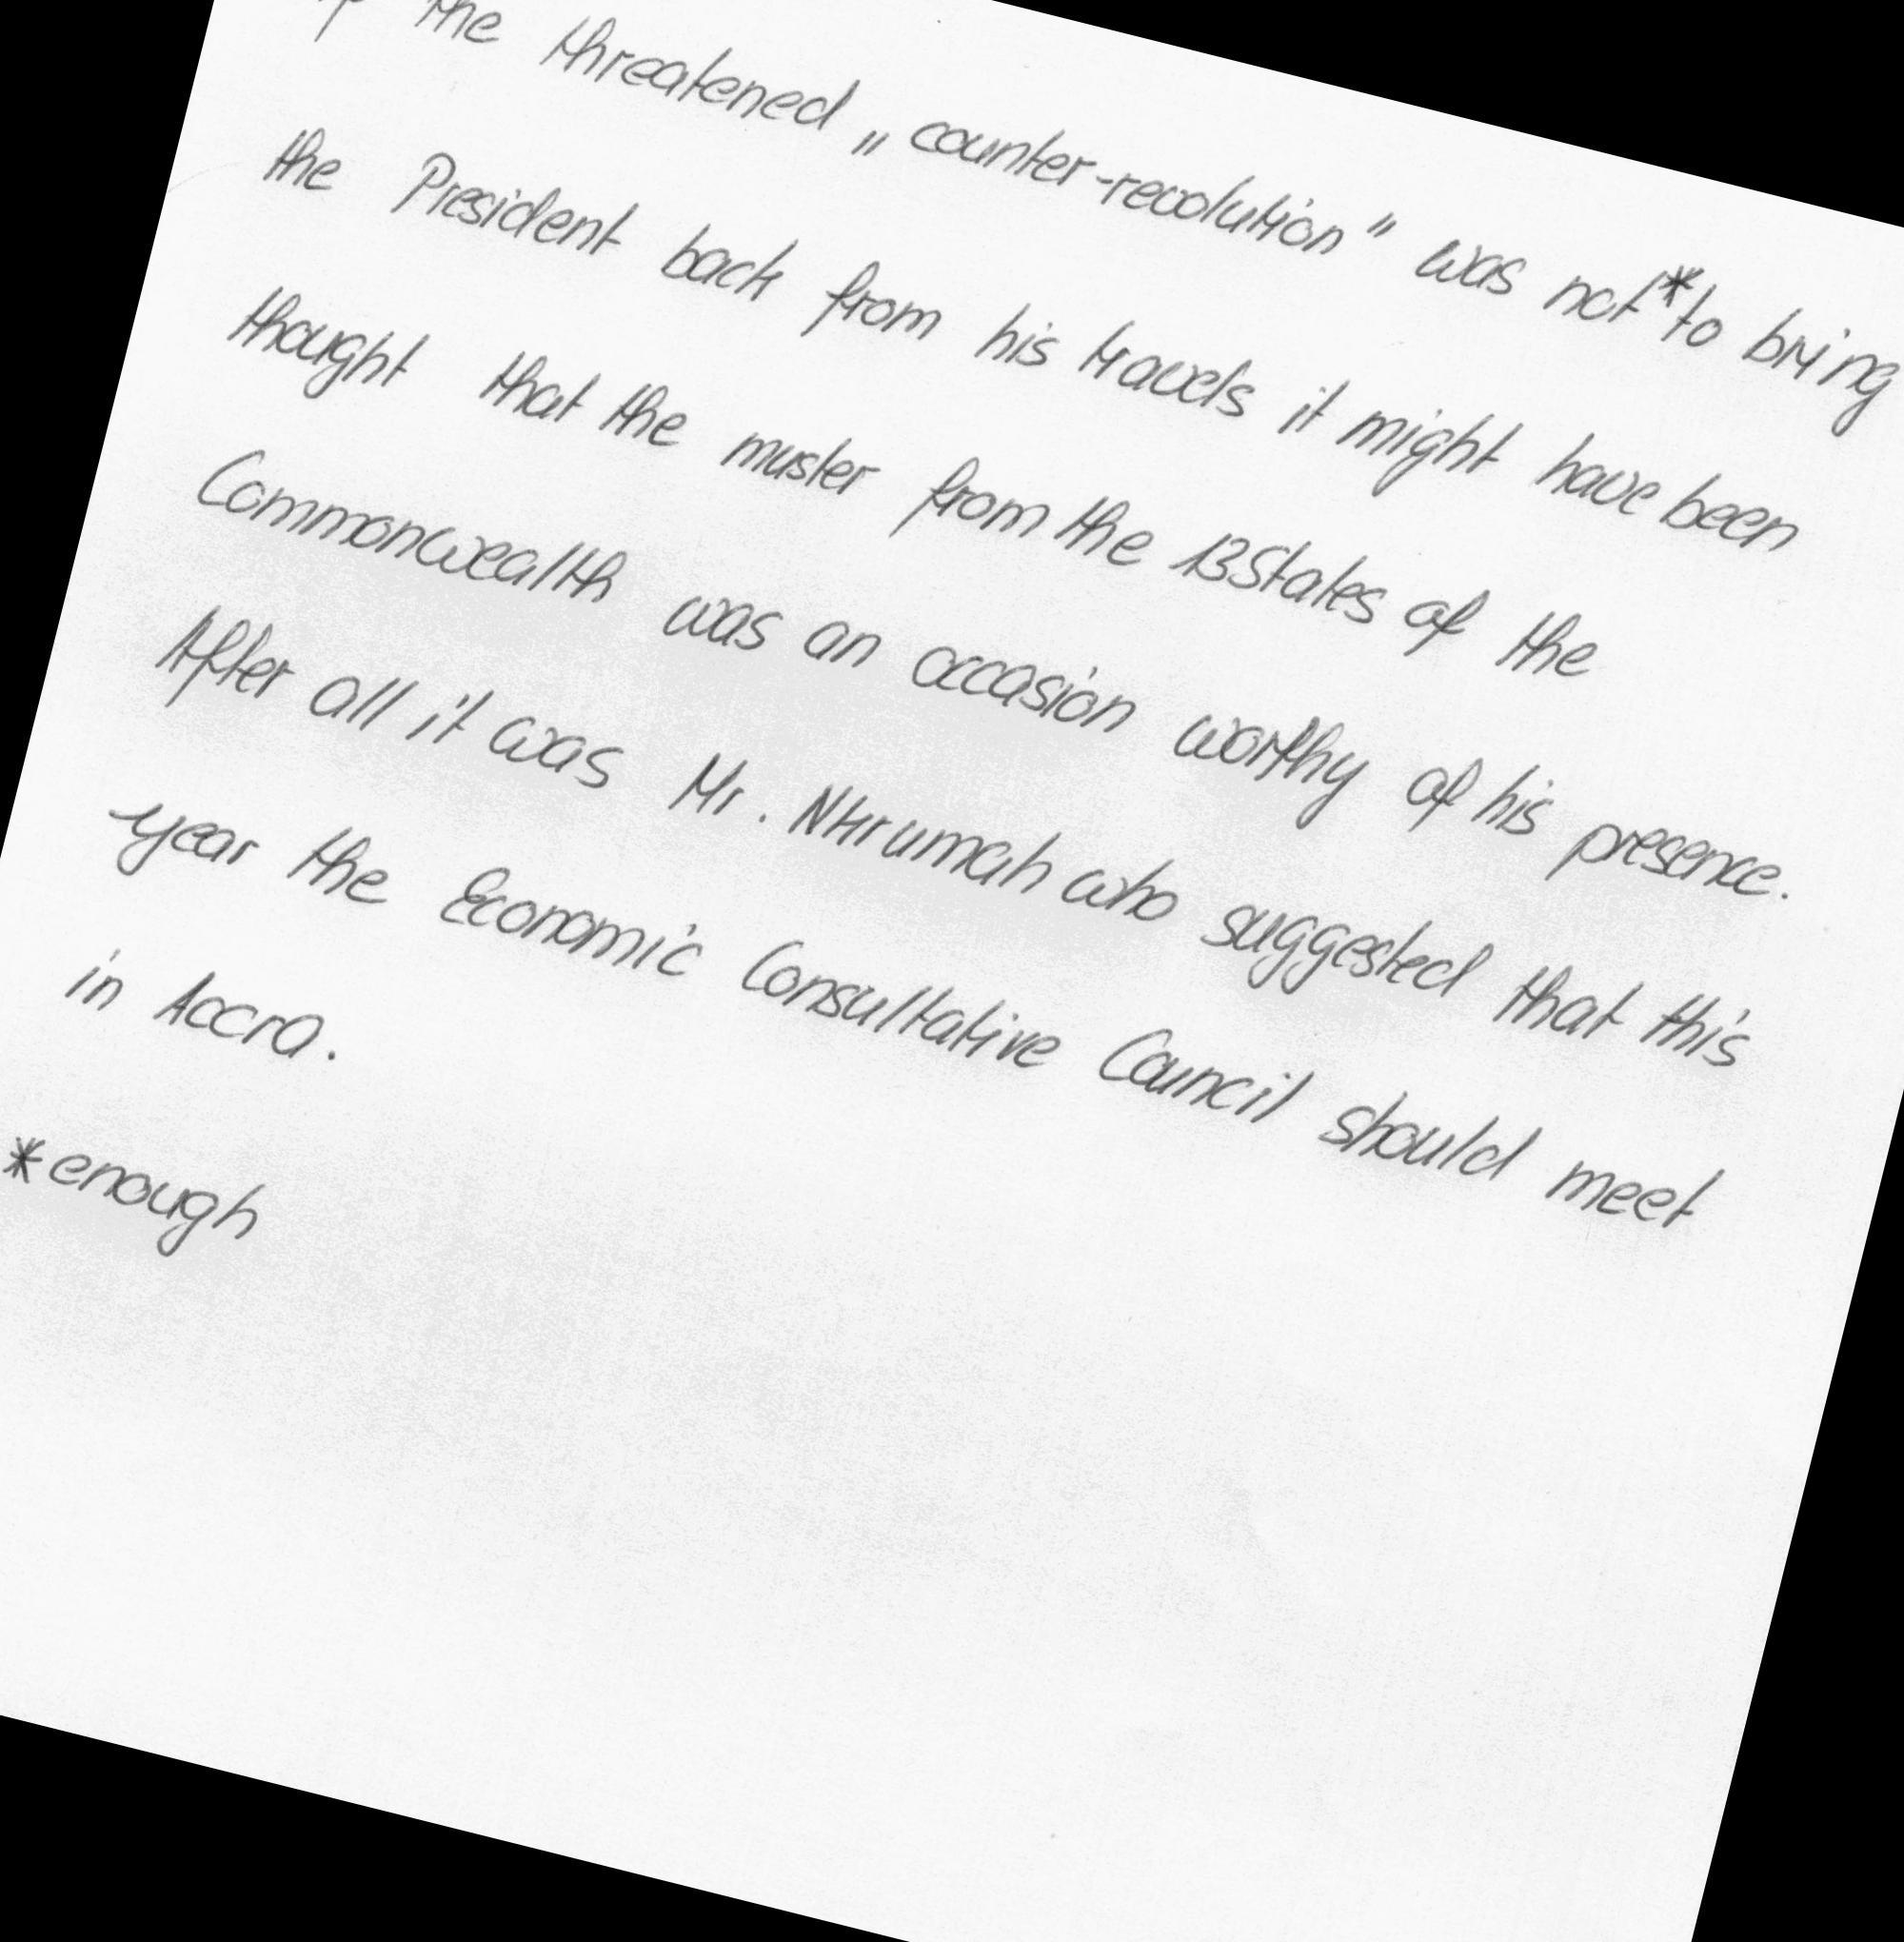 the threatened „counter-revolution" was not*to bring
the President back from his travels it might have been
thought that the muster from the 13 States of the
Commonwealth was an occasion worthy of his presence.
After all it was Mr. Nkrumah who suggested that this
year the Economic Consultative Council should meet
in Accra.
*enough